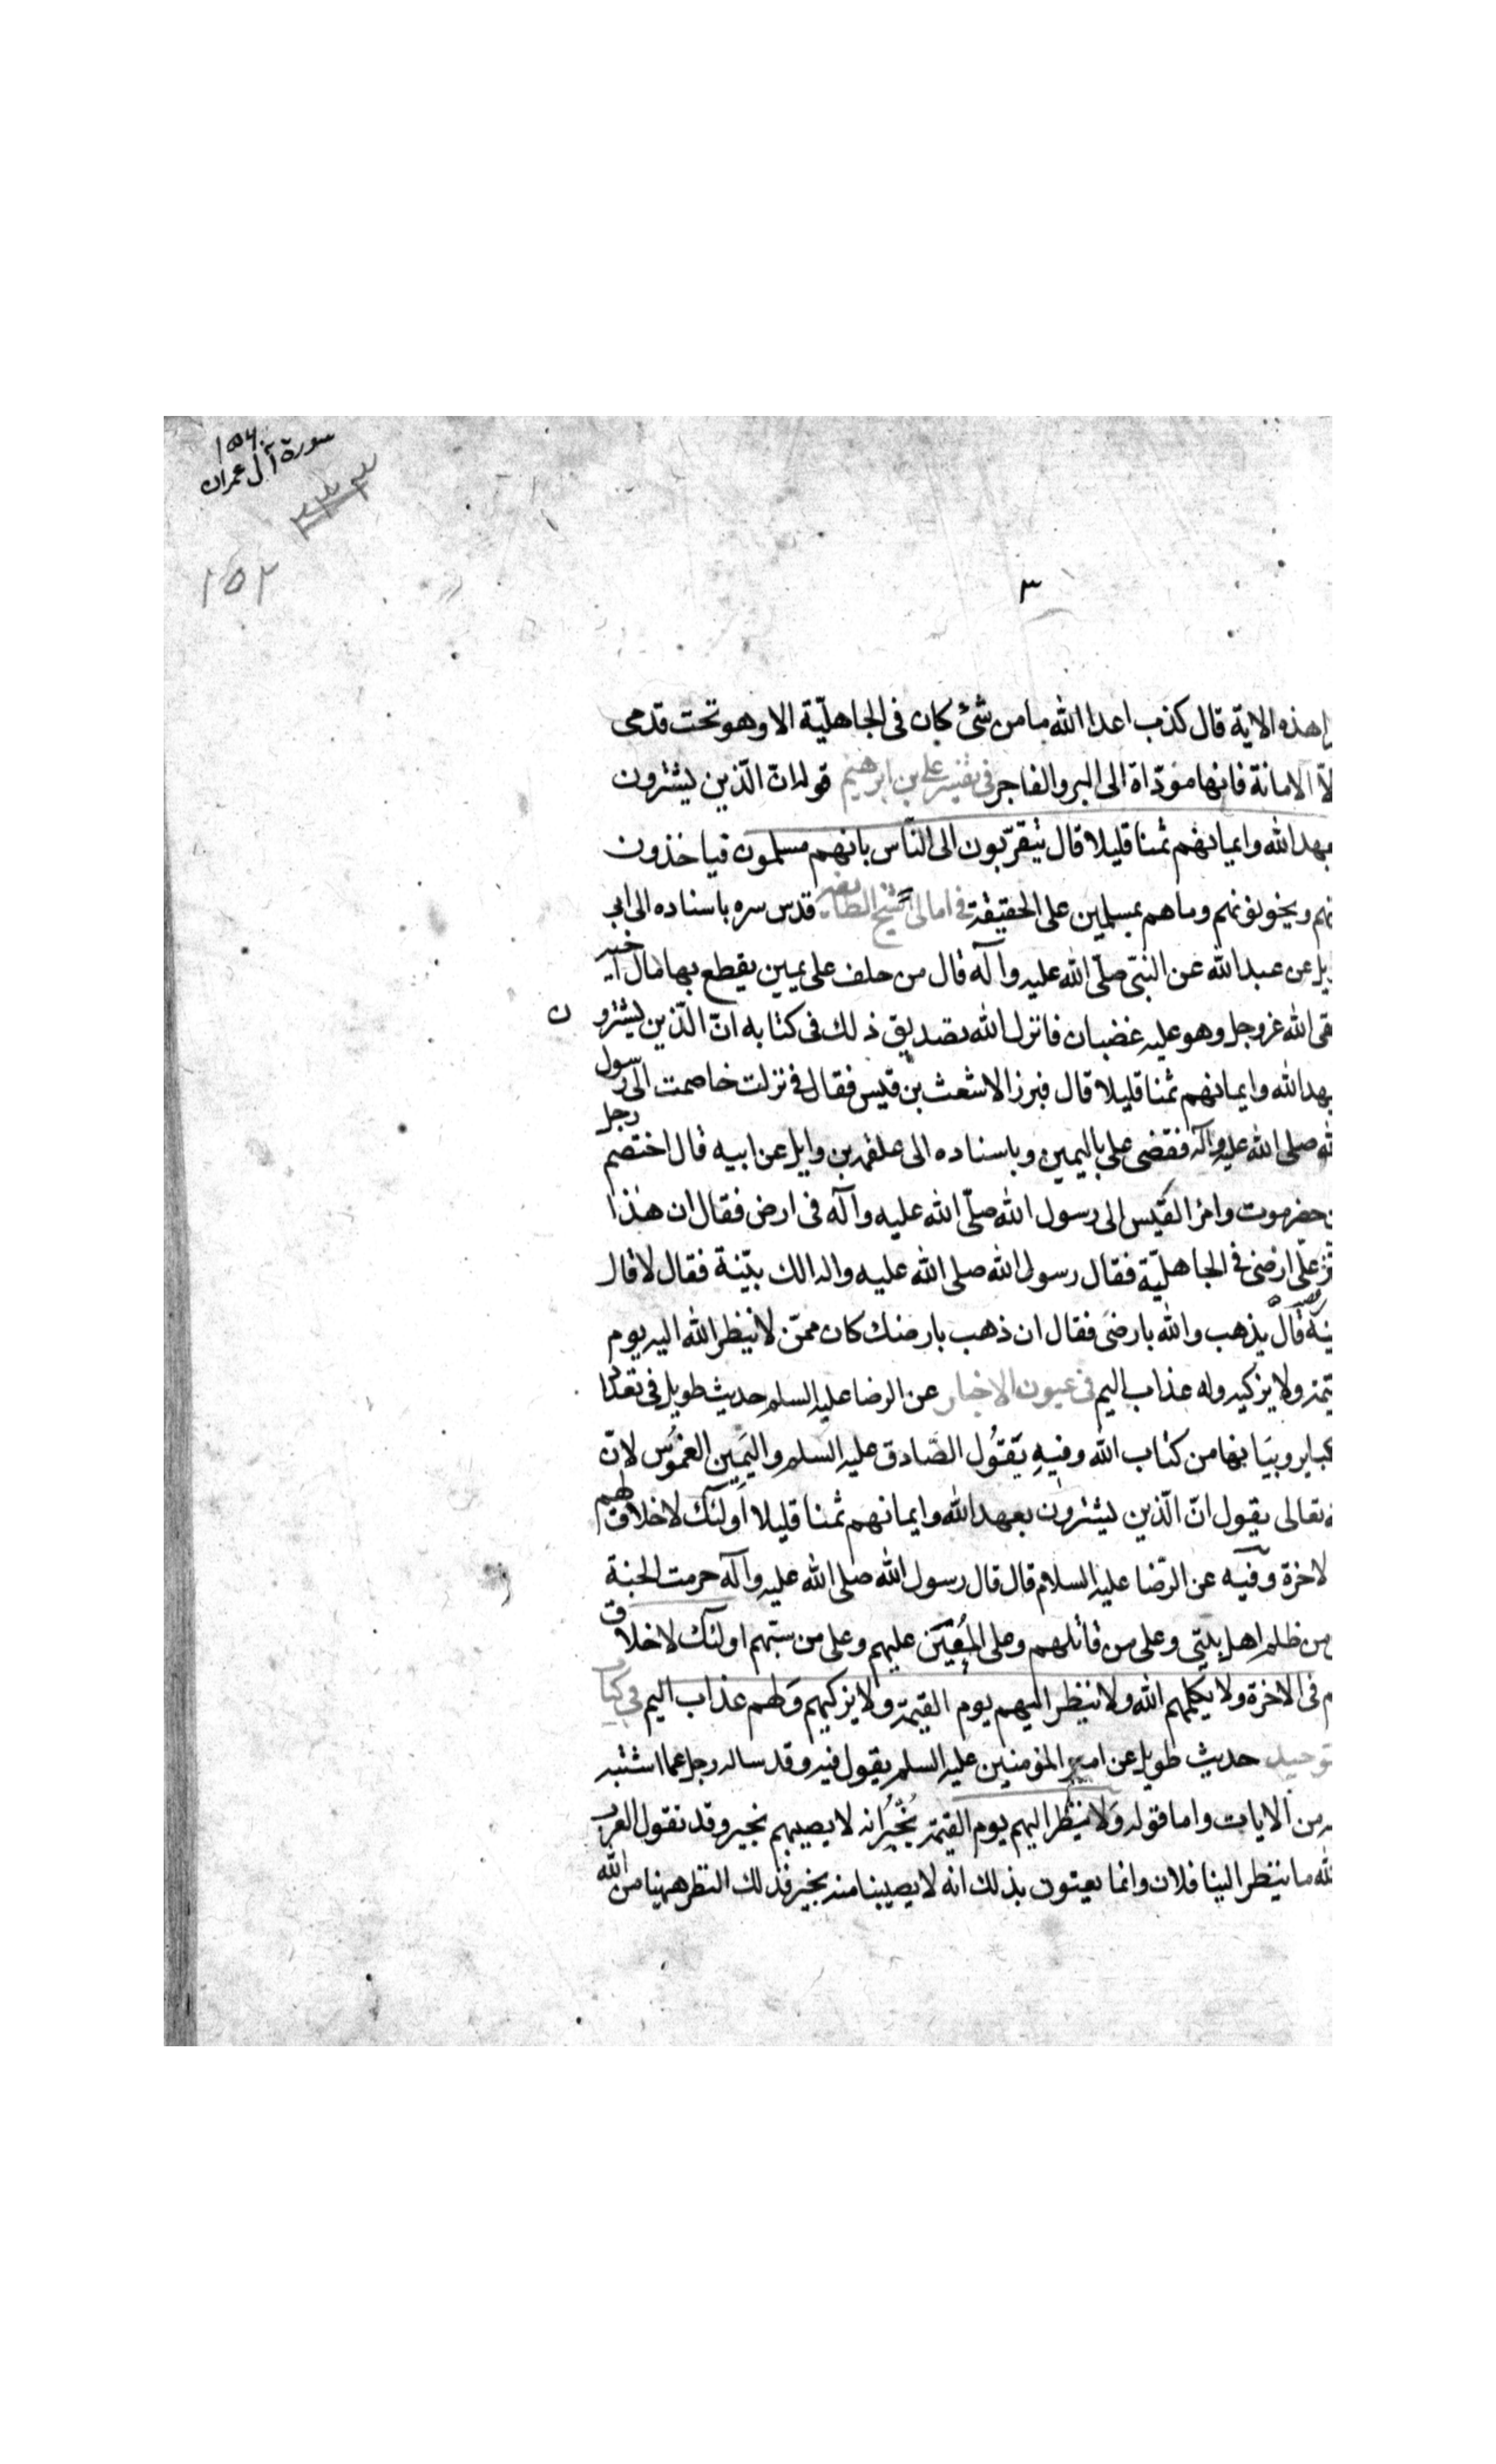 ١٥٤
سورة آل عمران
١٥٢
٣
هذه الاية قال كذب اعدا الله ما من شئ كان فى الجاهليّة الا وهو تحت قدمى
الّا الامانة فانها مؤدّاة الى البر والفاجر فى تفسير على بن ابرهيم قوله انّ الّذين يشترون
بعهد الله وايمانهم ثمنا قليلا قال يتقرّبون الى النّاس بانهم مسلمون فياخذون
منهم ويخونونهم وما هم بمسلمين على الحقيقة فى امالى شيخ الطايفه قدس سره باسناده الى ابى
وايل عن عبد الله عن النبىّ صلّى الله عليه وآله قال من حلف على يمين يقطع بها مال اخيه
لقى الله عزوجل وهو عليه غضبان فانزل الله تصديق ذلك فى كتابه انّ الّذين يشترون
بعهد الله وايمانهم ثمنا قليلا قال فبرز الاشعث بن قيس فقال فى نزلت خاصمت الى رسول
الله صلى الله عليه وآله فقضى على باليمين وباسناده الى علقمه بن وايل عن ابيه قال اختصم رجل
من حضرموت وامرؤ القيس الى رسول الله صلّى الله عليه وآله فى ارض فقال ان هذا
ابتزّ علّى ارضى فى الجاهليّة فقال رسول الله صلى الله عليه واله الك بيّنة فقال لا قال
فيمينه قال يذهب والله بارضى فقال ان ذهب بارضك كان ممّن لا ينظر الله اليه يوم
القيمة ولا يزكيه وله عذاب اليم فى عيون الاخبار عن الرضا عليه السلم حديث طويل فى تعداد
الكباير وبيانها من كتاب الله وفيه يقول الصّادق عليه السلم واليمين الغموس لانّ
الله تعالى يقول انّ الّذين يشترون بعهد الله وايمانهم ثمنا قليلا اولئك لا خلاق لهم
فى الاخرة وفيه عن الرّضا عليه السلام قال قال رسول الله صلى الله عليه وآله حرمت الجنة
على من ظلم اهل بيتى وعلى من قاتلهم وعلى المعين عليهم وعلى من سبّهم اولئك لا خلاق
لهم فى الاخرة ولا يكلمهم الله ولا ينظر اليهم يوم القيمة ولا يزكيهم ولهم عذاب اليم فى كتاب
التوحيد حديث طويل عن امير المؤمنين عليه السلم يقول فيه وقد ساله رجل عما اشتبه
عليه من الايات واما قوله ولا ينظر اليهم يوم القيمة يُخْبِرُ انه لا يصيبهم بخير وقد تقول العرب
والله ما ينظر الينا فلان وانما يعنون بذلك انه لا يصيبنا منه بخير فذلك النظر ههنا من الله